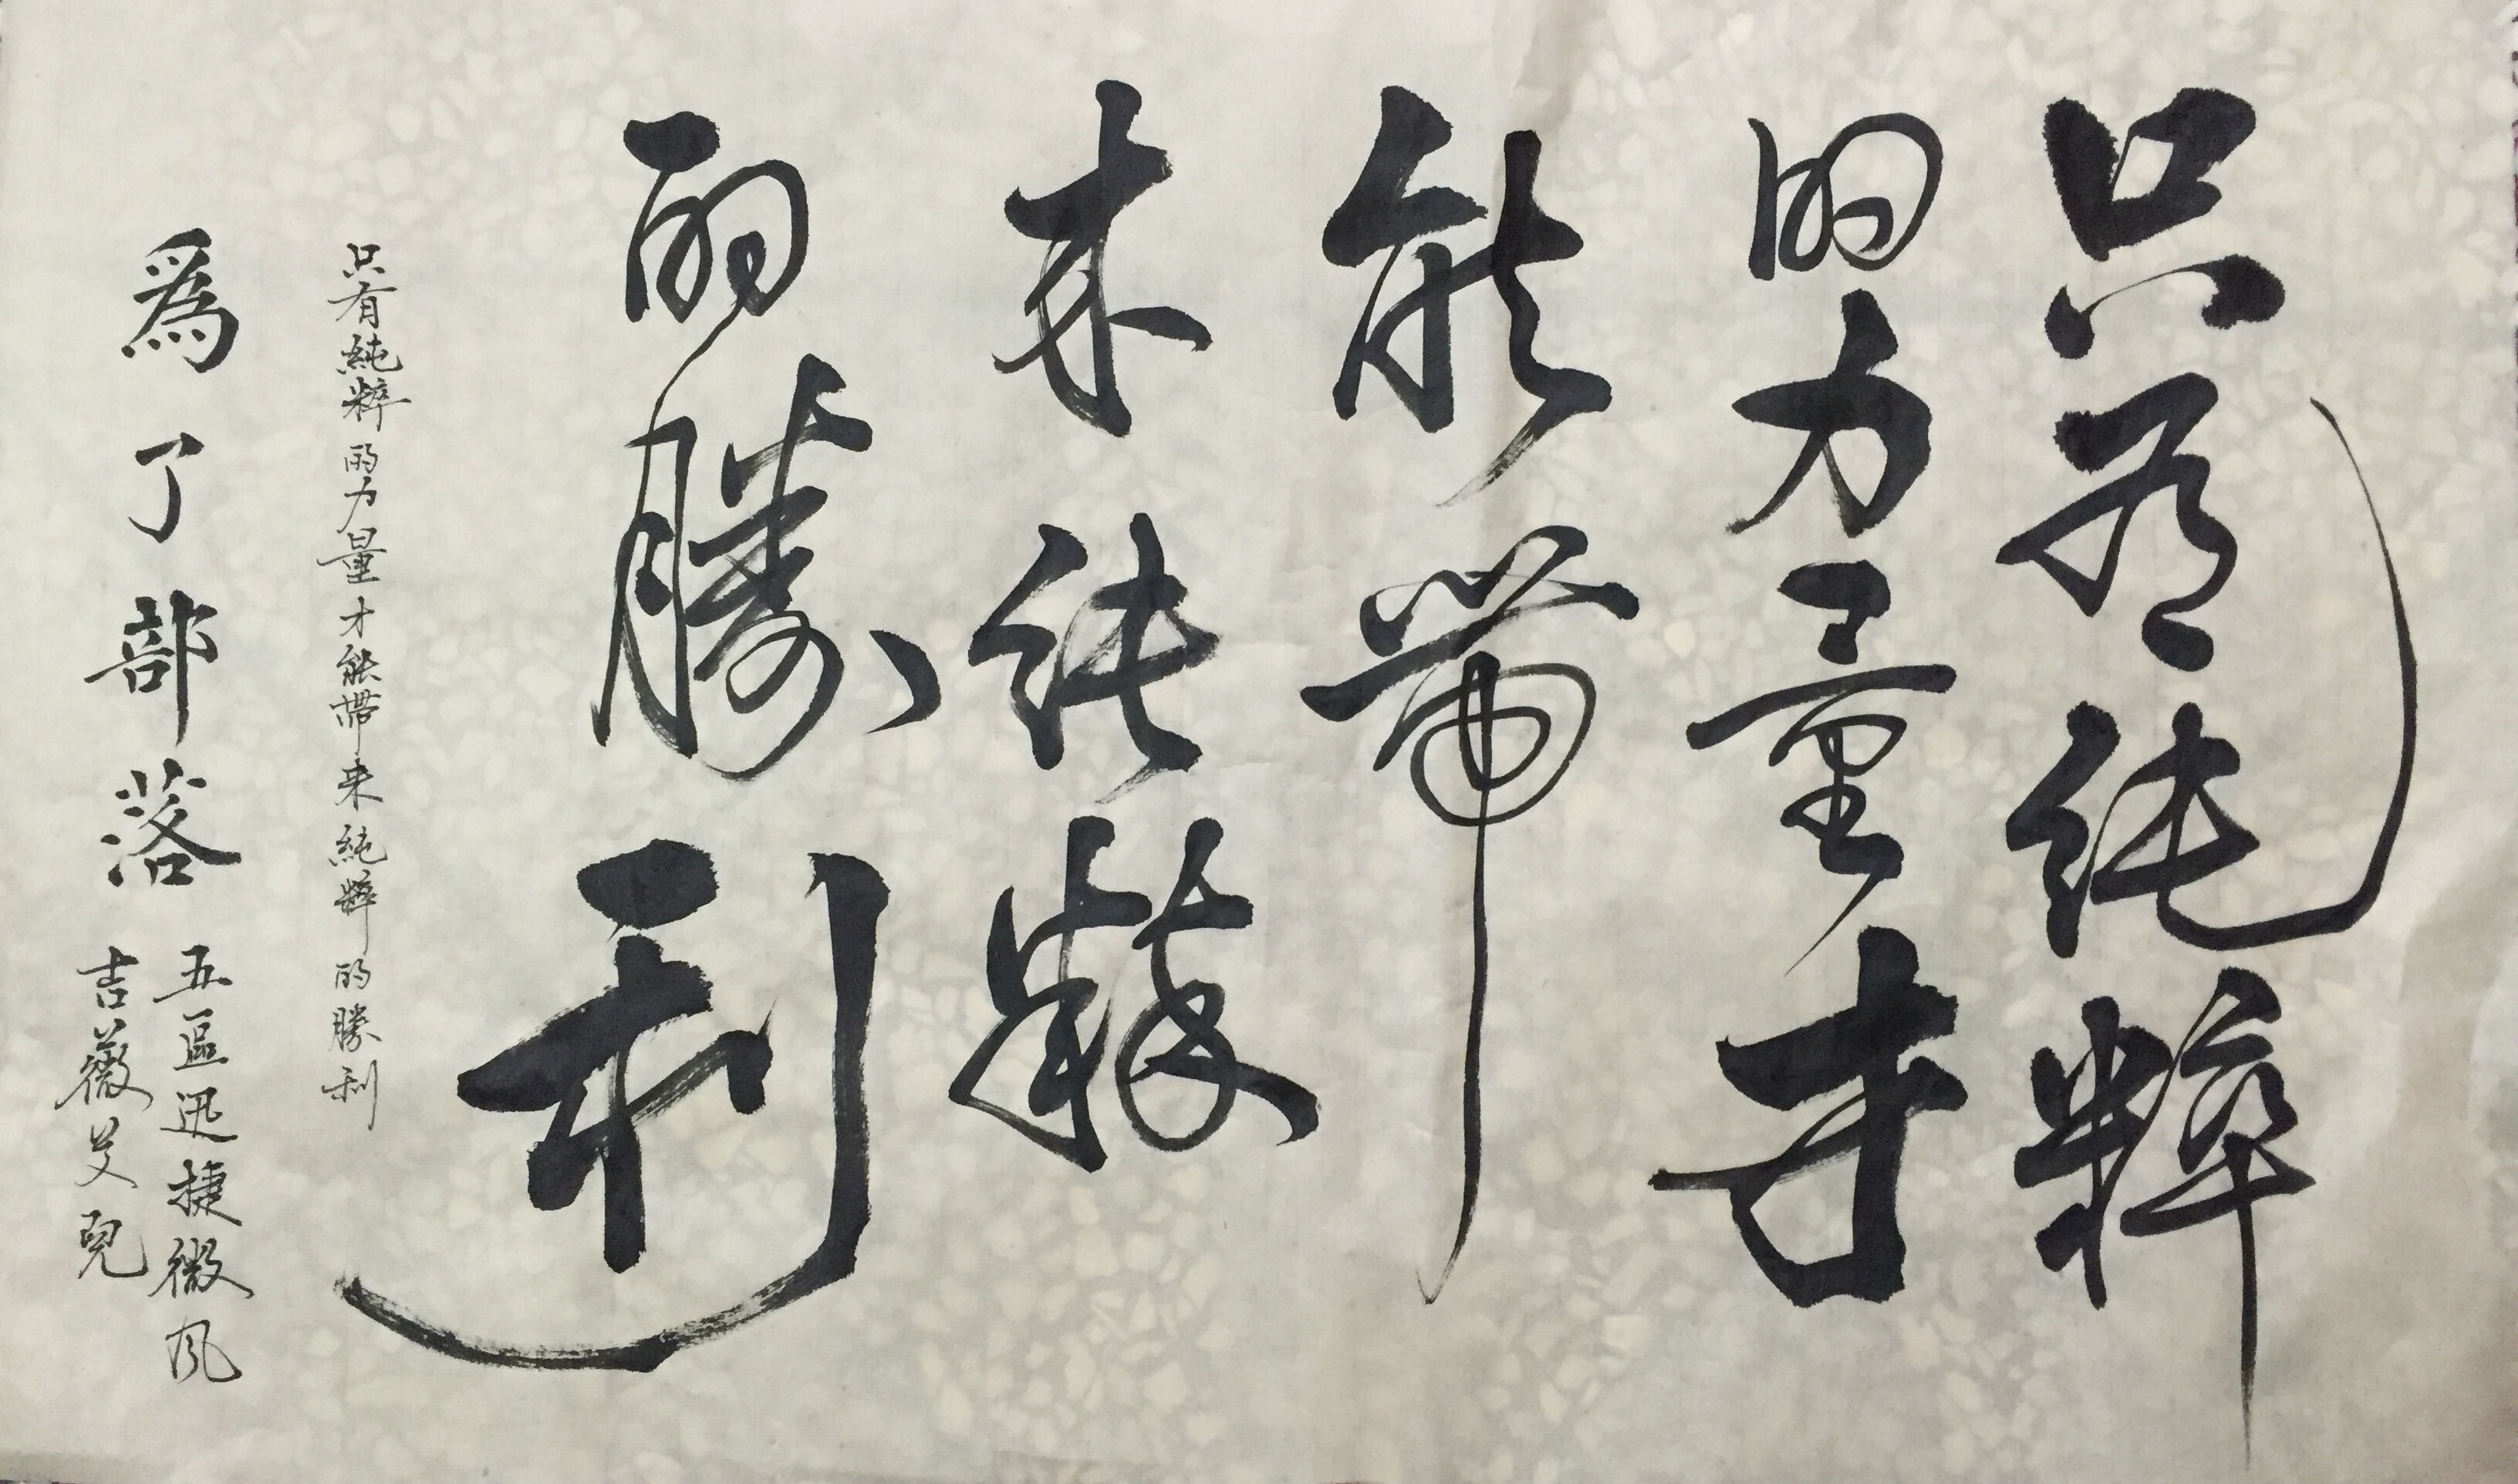 只有純粹
的力量才
能帶
来純粹
的勝利
只有純粹的力量才能帶来純粹的勝利
爲了部落
五區迅捷微风
吉薇艾兒